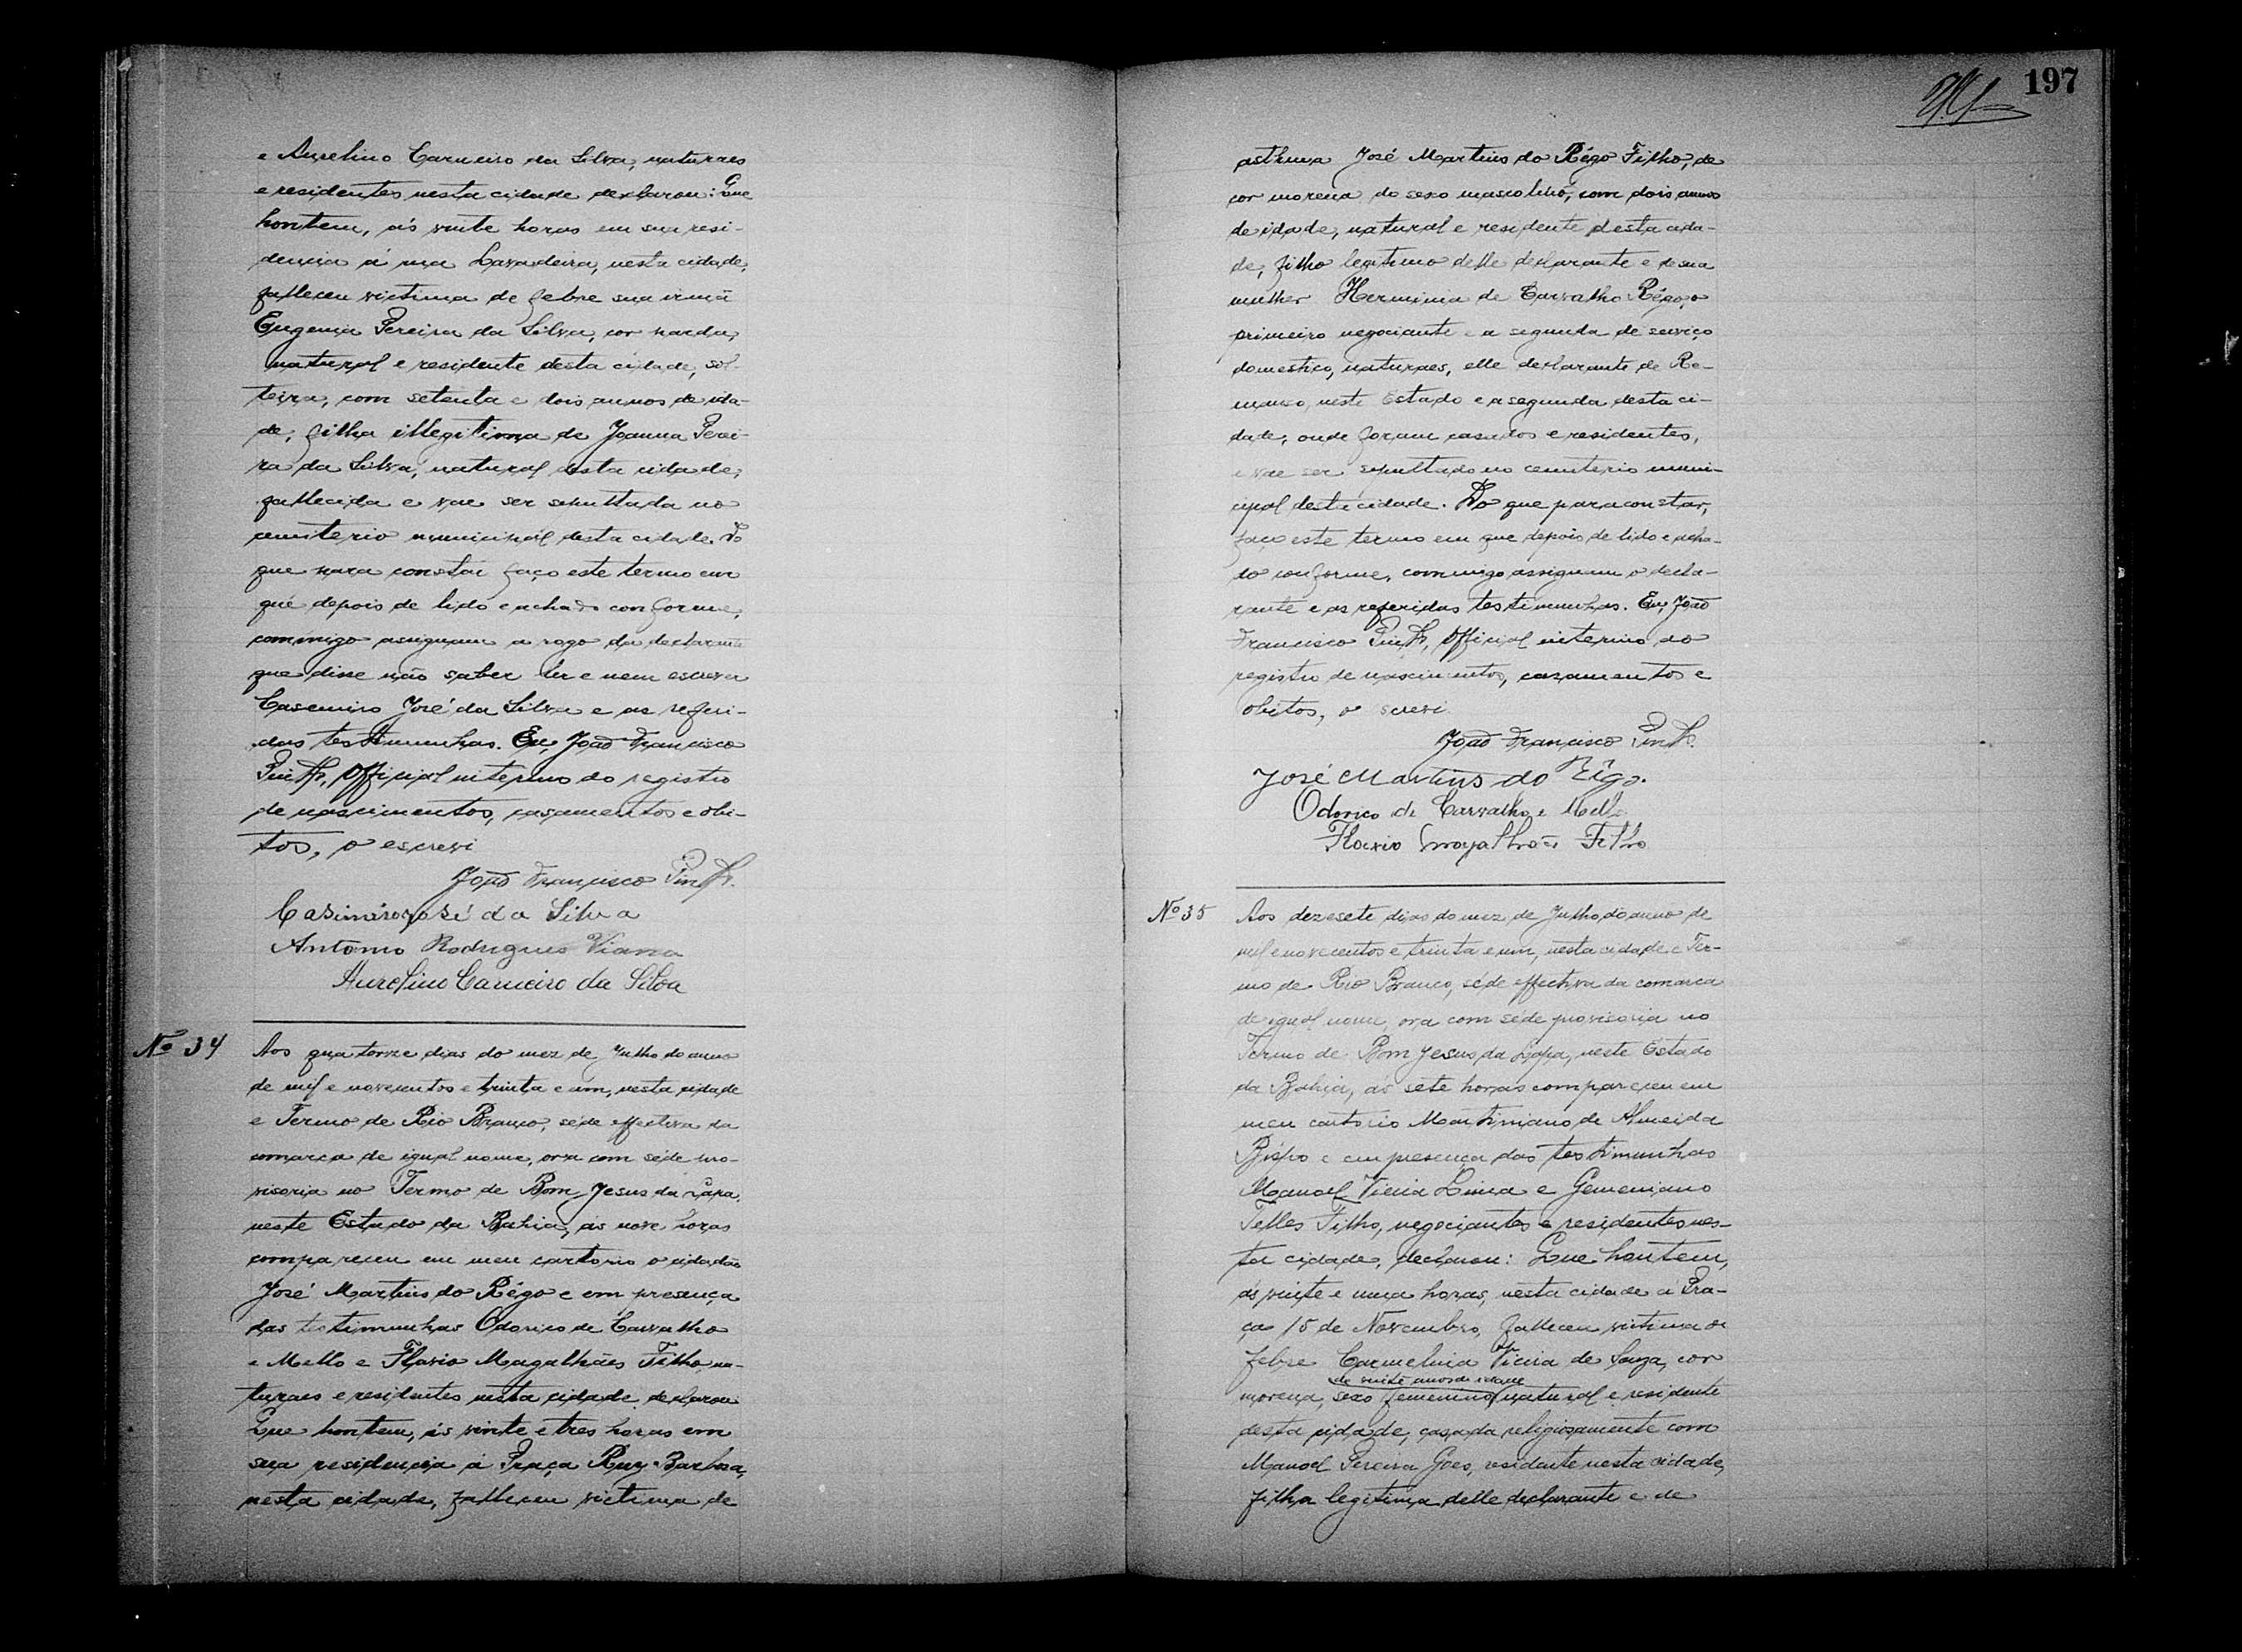 e Aurelino Carneiro da Silva, naturaes
e residentes nesta cidade declarou: Que
hontem, ás vinte horas em sua resi-
dencia á rua Lavadeira, nesta cidade,
falleceu victima de febre sua irmã
Eugenia Pereira da Silva, cor parda,
natural e residente desta cidade, sol-
teira, com setenta e dois annos de ida-
de, filha illegitima de Joanna Perei-
ra da Silva, natural desta cidade,
fallecida e vae ser sepultada no
cemiterio municipal desta cidade. Do
que para constar faço este termo em
que depois de lido e achado conforme,
commigo assignam a rogo da declarante
que disse não saber ler e nem escrever
Casemiro José da Silva e as referi-
das testimunhas. Eu, João Francisco
Official interino do registro
de nascimentos, casamentos e obi-
tos, o escrevi
João Francisco
Casimiro José da Silva
Antonio Rodrigues Viana
Aurelino Carneiro da Silva
Nº 34
Aos quatorze dias do mez de Julho do anno
de mil e novecentos e trinta e um, nesta cidade
e Termo de Rio Branco, séde effectiva da
comarca de igual nome, ora com séde pro-
visoria no Termo de Bom Jesus da Lapa,
neste Estado da Bahia, ás nove horas
compareceu em meu cartorio o cidadão
José Martins do Rêgo e em presença
das testimunhas Odorico de Carvalho
e Mello e Flavio Magalhães Filho, na-
turaes e residentes nesta cidade, declarou
Que hontem, ás vinte e tres horas em
sua residencia á Praça Ruy Barbosa,
nesta cidade, falleceu victima de
197
asthma José Martins do Rêgo Filho, de
cor morena do sexo mascolino, com dois annos
de idade, natural e residente desta cida-
de, filho legitimo delle declarante e de sua
mulher Herminia de Carvalho Rêgo, o
primeiro negociante e a segunda de serviço
domestico, naturaes, elle declarante de Re-
manso, neste Estado e a segunda desta ci-
dade, onde foram casados e residentes,
e vae ser sepultado no cemiterio muni-
cipal desta cidade. Do que para constar,
faço este termo em que depois de lido e acha-
do conforme, commigo assignam o decla-
rante e as referidas testimunhas. Eu, João
Francisco Official interino do
registro de nascimentos, casamentos e
obitos, o screvi
João Francisco
José Martins do Rêgo.
Odorico de Carvalho e Mello
Flavio Magalhães Filho
Nº 35
Aos dezesete dias do mez de Julho do anno de
mil e novecentos e trinta e um, nesta cidade e Ter-
mo de Rio Branco, séde effectiva da comarca
de igual nome, ora com séde provisoria no
Termo de Bom Jesus da Lapa, neste Estado
da Bahia, ás sete horas compareceu em
meu cartorio Martiniano de Almeida
Bispo e em presença das testimunhas
Manoel Vieira Lima e Gemeniano
Telles Filho, negociantes e residentes nes-
ta cidade, declarou: Que hontem,
ás vinte e uma horas, nesta cidade á Pra-
ça 15 de Novembro, falleceu victima de
febre Carmelina Vieira de Souza, cor
de vinte annos de idade
morena, sexo femenino, natural e residente
desta cidade, casada religiosamente com
Manoel Pereira Goes, residente nesta cidade,
filha legitima delle declarante e de